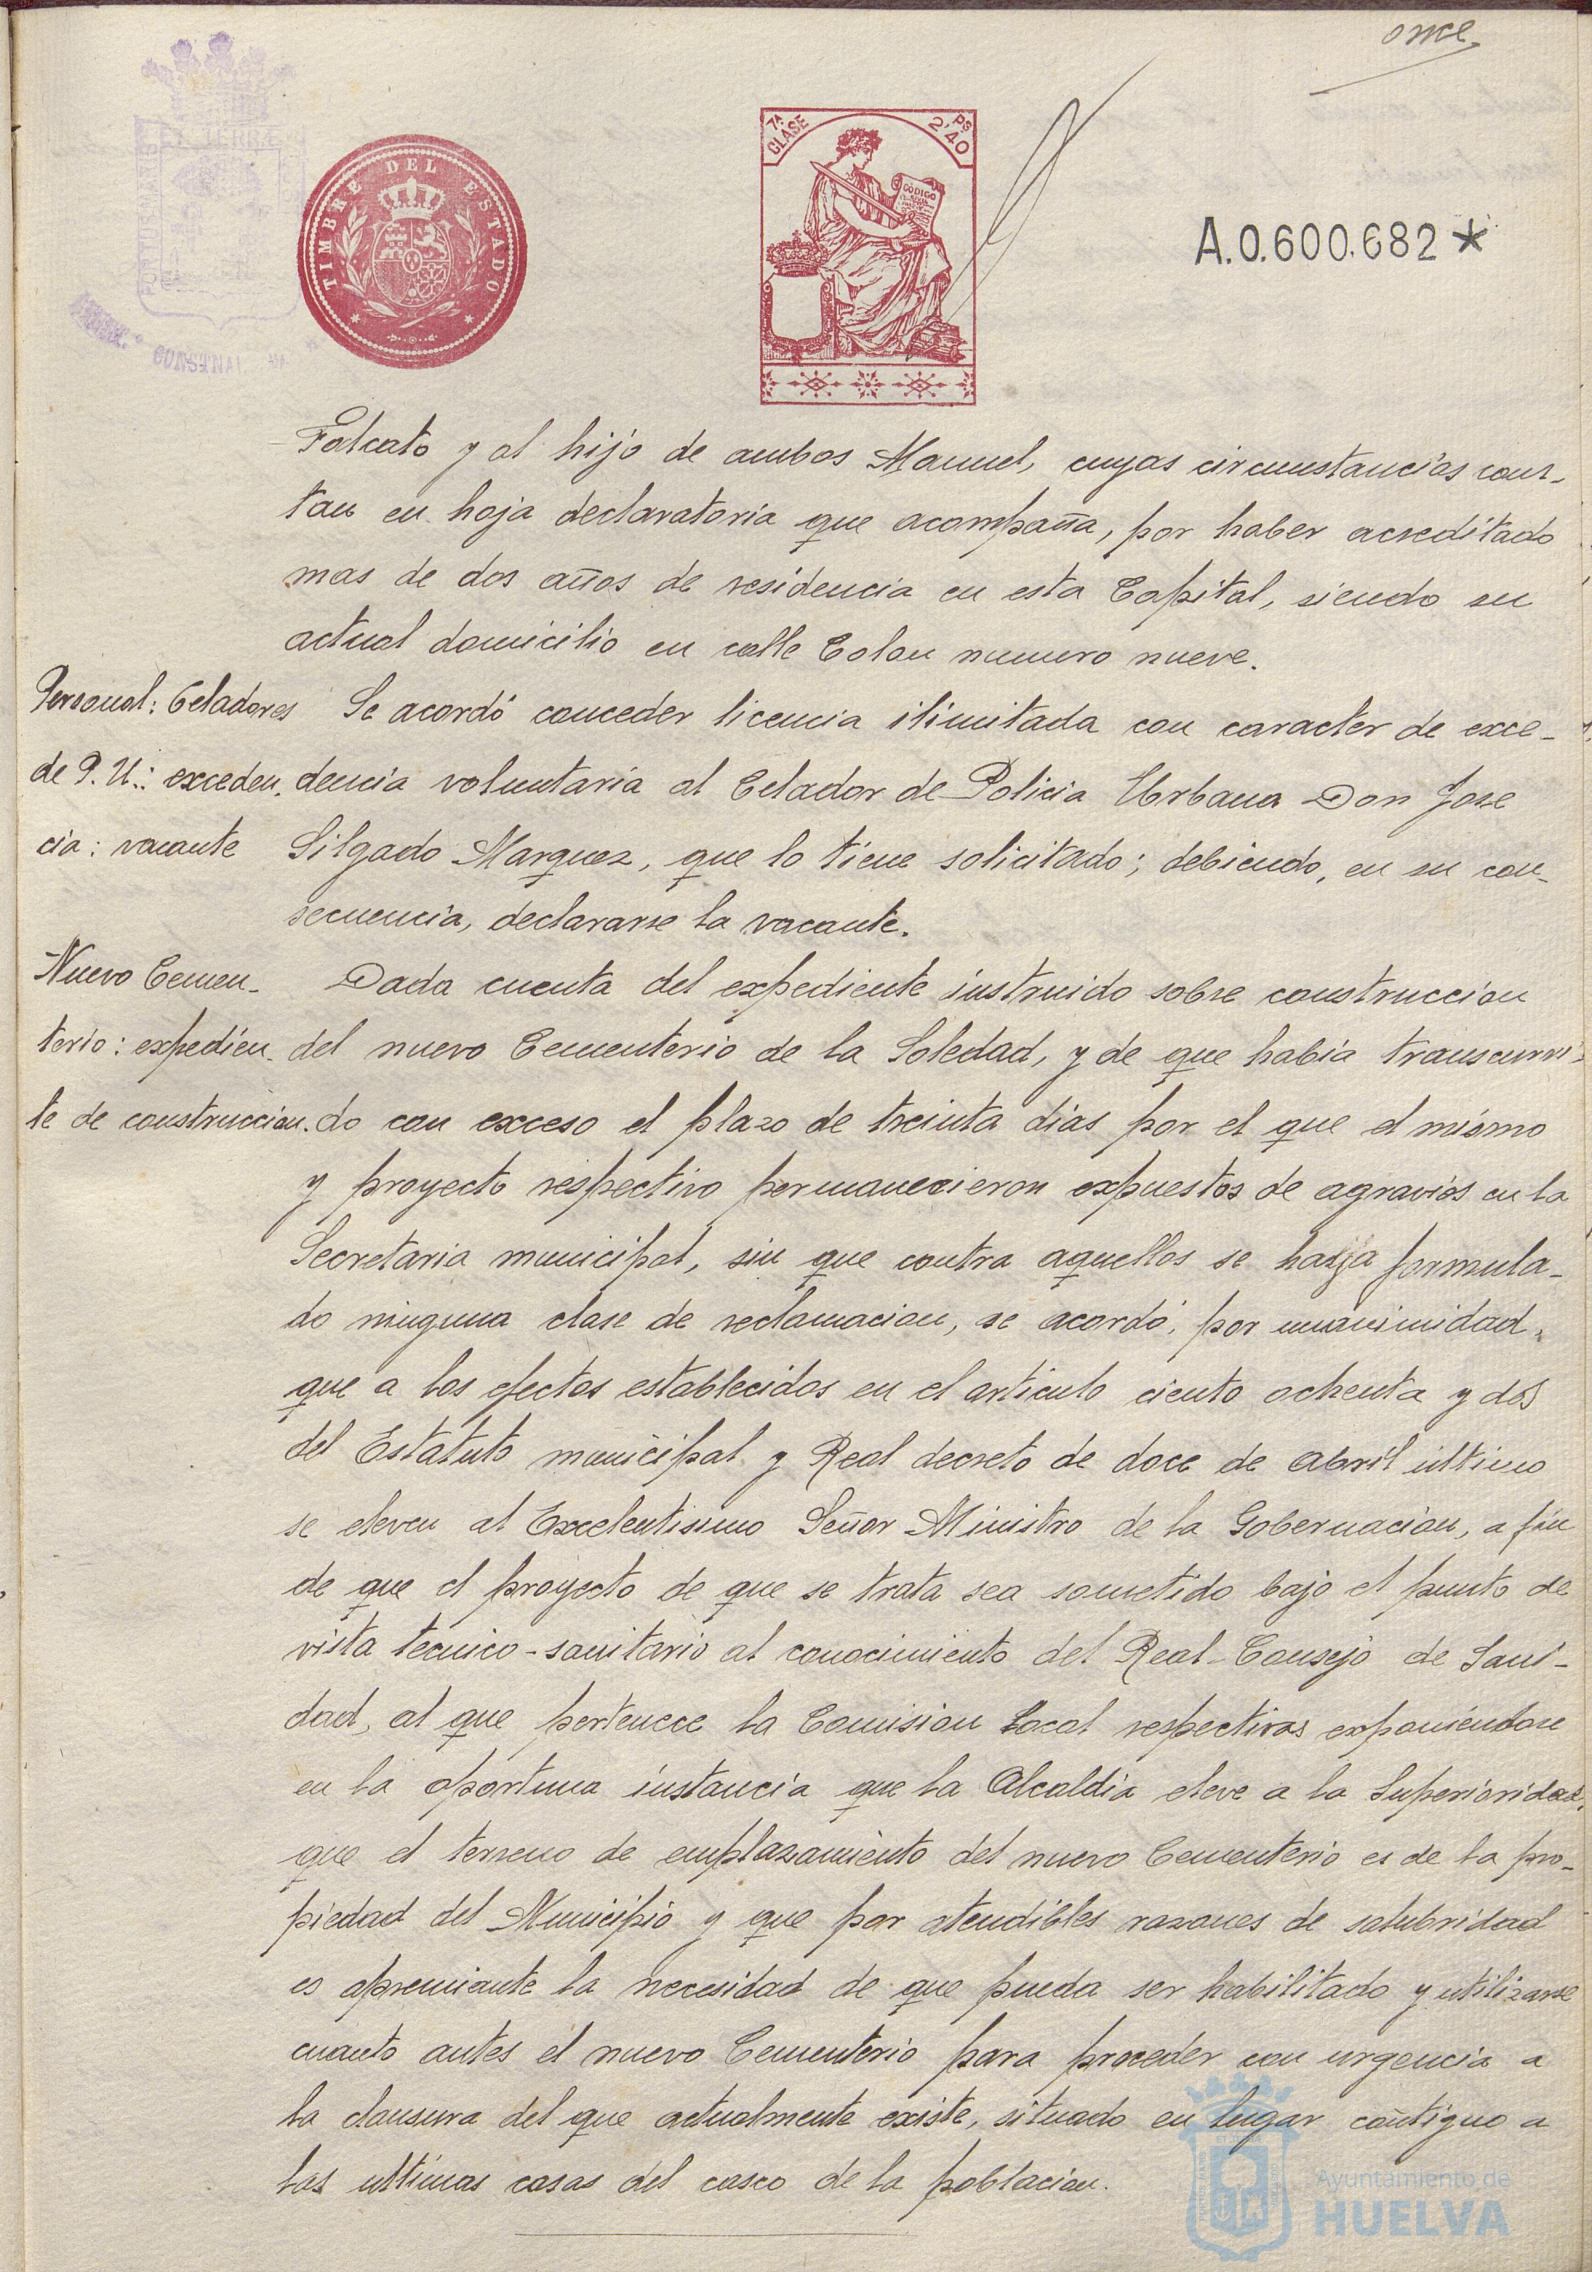 once
TIMBRE DEL ESTADO
7ª CLASE
2'40 Ps
CÓDIGO
A.0.600.682*
Falcato y al hijo de ambos Manuel, cuyas circunstancias cons-
tan en hoja declaratoria que acompaña, por haber acreditado
mas de dos años de residencia en esta Capital, siendo su
actual domicilio en calle Colon numero nueve.
Personal: Celadores
de P. U.: exceden-
cia: vacante
Se acordó conceder licencia ilimitada con caracter de exce-
dencia voluntaria al Celador de Policia Urbana Don Jose
Silgado Marquez, que lo tiene solicitado; debiendo, en su con-
secuencia, declararse la vacante.
Nuevo Cemen-
terio: expedien-
te de construccion.
Dada cuenta del expediente instruido sobre construccion
del nuevo Cementerio de la Soledad, y de que habia transcurri-
do con exceso el plazo de treinta dias por el que el mismo
y proyecto respectivo permanecieron expuestos de agravios en la
Secretaria municipal, sin que contra aquellos se haya formula-
do ninguna clase de reclamacion, se acordó, por unanimidad,
que a los efectos establecidos en el articulo ciento ochenta y dos
del Estatuto municipal y Real decreto de doce de abril ultimo
se eleven al Excelentisimo Señor Ministro de la Gobernacion, a fin
de que el proyecto de que se trata sea sometido bajo el punto de
vista tecnico-sanitario al conocimiento del Real Consejo de Sani-
dad, al que pertenece la Comision Local respectivas exponiendose
en la oportuna instancia que la Alcaldia eleve a la Superioridad,
que el terreno de emplazamiento del nuevo Cementerio es de la pro-
piedad del Municipio y que por atendibles razones de salubridad
es apremiante la necesidad de que pueda ser habilitado y utilizarse
cuanto antes el nuevo Cementerio para proceder con urgencia a
la clausura del que actualmente existe, situado en lugar contiguo a
las ultimas casas del casco de la poblacion.
Ayuntamiento de
HUELVA